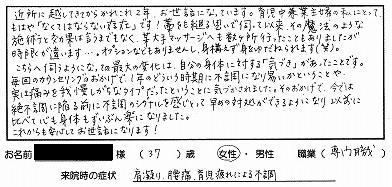 近所に越してきてからかれこれ2年、お世話になっています。育児中兼業主婦の私にとって
もはや「なくてはならない存在」です!夢を担う思いで伺って以来、その魔法のような
施術うと夕の虜は言うまでもなく、某大手マッサージへも数ヶ所行ったこともありましたが
時既が言います…。オプションなどもありませんし、身構えず身をゆだねられます(笑)。
こちらへ伺うようになっての最大の変化は、自分の身体に対する「気づき」があったことです。
毎回のカウンセリングのおかげで1年のどういう時期に不調になり易いかということや、
実は痛みを我慢しがちなタイプだったということに気づかされました。そのおかげで、今では
絶不調に陥る前に不調のシグナルを感じとって早めの対処ができるようになり、以前に
比べて心も身体もずいぶん楽になりました。
これからも安心してお世話になります!
お名前 様 (37)歳 女性・男性 職業(専門職)
来院時の症状 肩凝り、腰痛、育児疲れによる不調